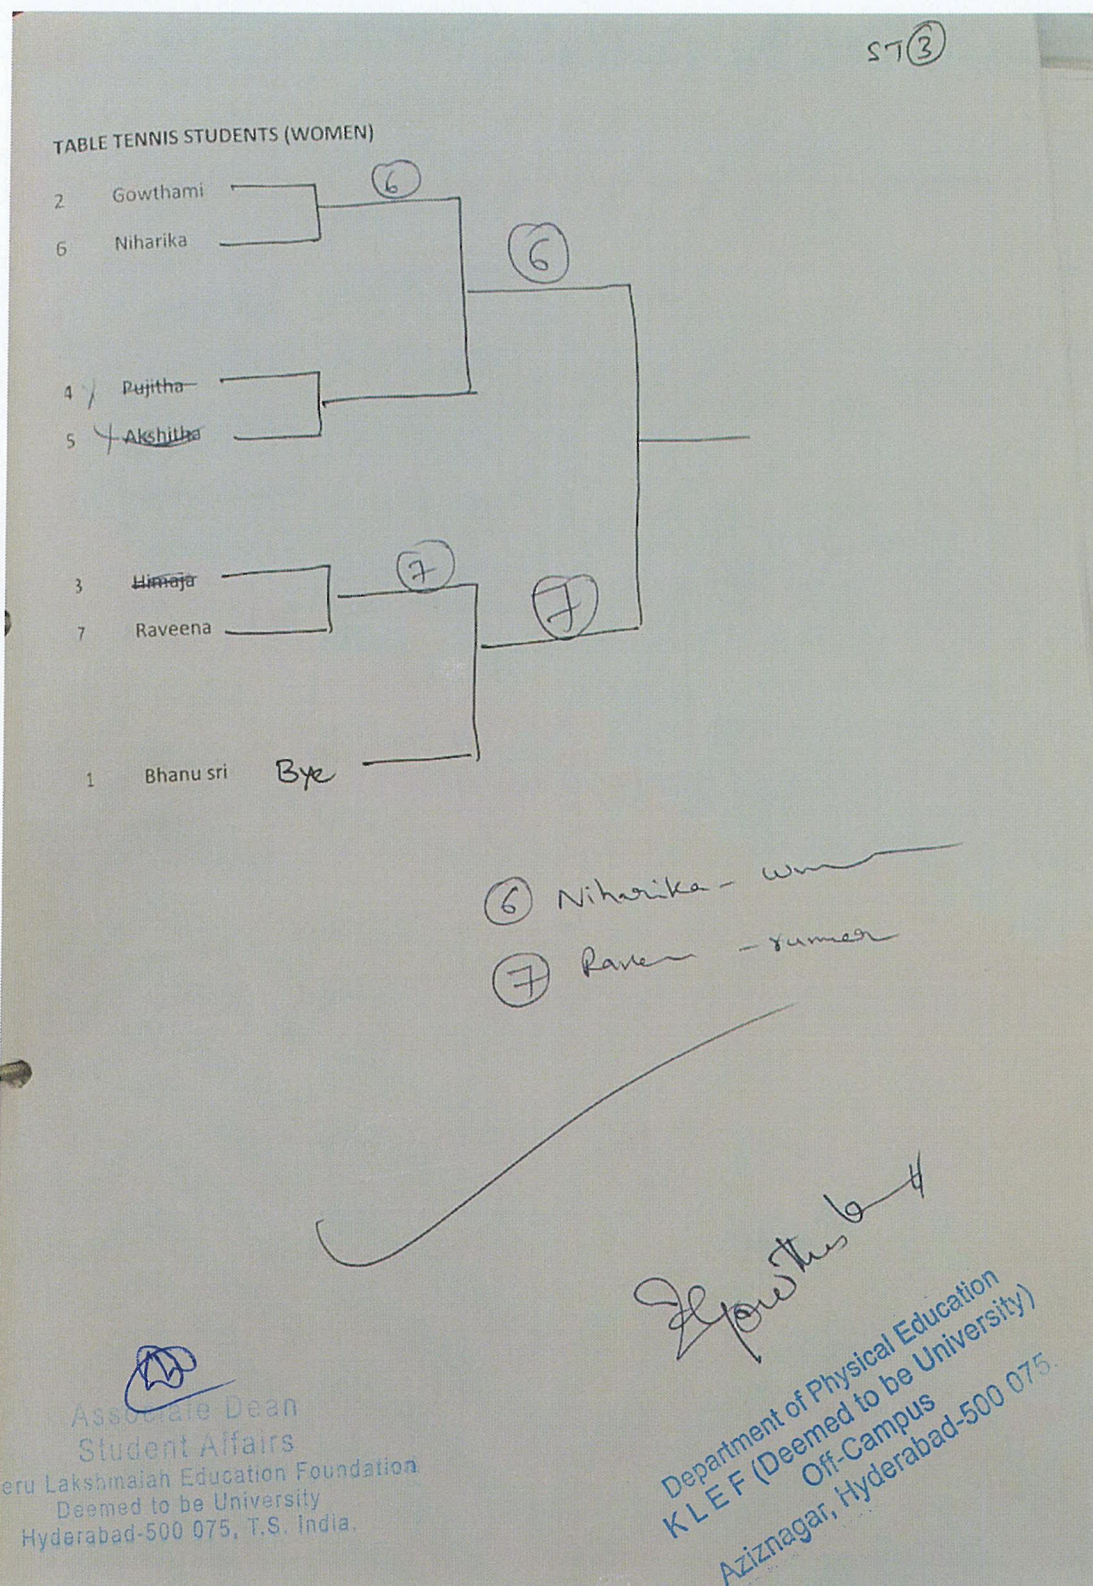 ST 3
TABLE TENNIS STUDENTS (WOMEN)
6
2 Gowthami
6 Niharika
6
4 Pujitha
5 Akshitha
7
3 Himaja
7 Raveena
7
1 Bhanu sri Bye
6 Niharika -
7 -
Associate Dean
Student Affairs
eru Lakshmaiah Education Foundation
Deemed to be University
Hyderabad-500 075, T.S. India.
Department of Physical Education
K L E F (Deemed to be University)
Off-Campus
Aziznagar, Hyderabad-500 075.